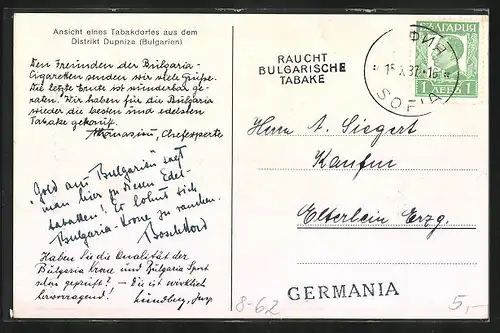 Ansicht eines Tabakdorfes aus dem
Distrikt Dupniza (Bulgarien)
Den Freunden der Bulgaria-
Cigaretten senden wir viele Grüße.
Die letzte Ernte ist wunderbar ge-
raten. Wir haben für die Bulgaria
wieder die besten und edelsten
Tabake gekauft.
Chefexperte
Gold aus Bulgarien sagt
man hier zu diesen Edel-
tabaken! Es lohnt sich
Bulgaria-Krone zu rauchen.
Haben Sie die Qualität der
Bulgaria Krone und Bulgaria Sport
schon geprüft? – Sie ist wirklich
hervorragend! Lundberg, Insp.
RAUCHT
BULGARISCHE
TABAKE
15.X.37.-16
SOFIA
БЪЛГАРИЯ
1 ЛЕВ 1
Herrn A. Siegert
Kaufm
Elterlein Erzg.
GERMANIA
8-62
5,-